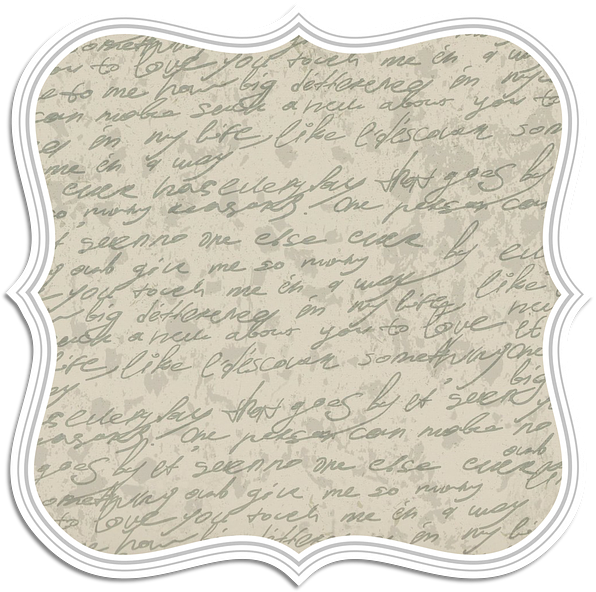 something
to love you touch me in a w
to me how big difference in my
can make such a new about you to
in my life, like I discover som
me in a way
ever has everyday that goes by
so many reasons. One person can
it's seen no one else ever by
and give me so many
you touch me in a way like
big difference in my life,
such a new about you to love it
life, like I discover something One
big
everyday that goes by it's seen
reasons. One person can make no
goes by it's seen no one else ever
and
something and give me so many
to love you touch me in a way
how big difference in my